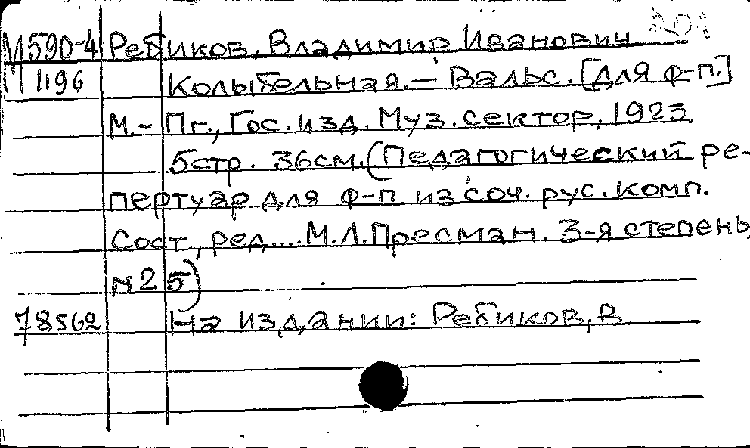 М590-4 Ребиков, Владимир Иванович
1196 Колыбельная. – Вальс. [Для ф-п.]
М.– Пг., Гос. изд. Муз. сектор, 1923
5стр. 36см. (Педагогический ре-
пертуар для ф-п из соч. рус. комп.
Сост., ред.... М.Л. Пресман. 3-я степень,
№25)
78562 На издании: Ребиков, В